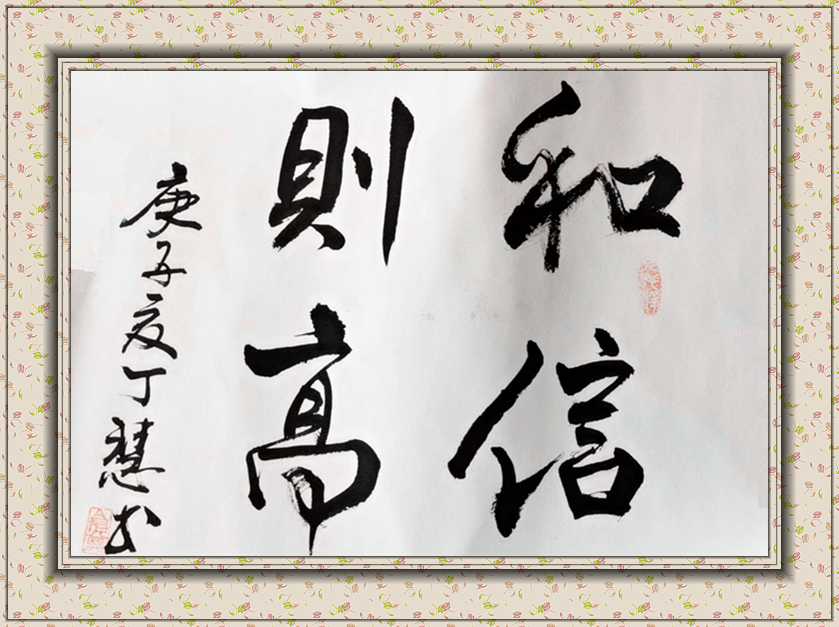 和信
則高
庚子夏丁慧书